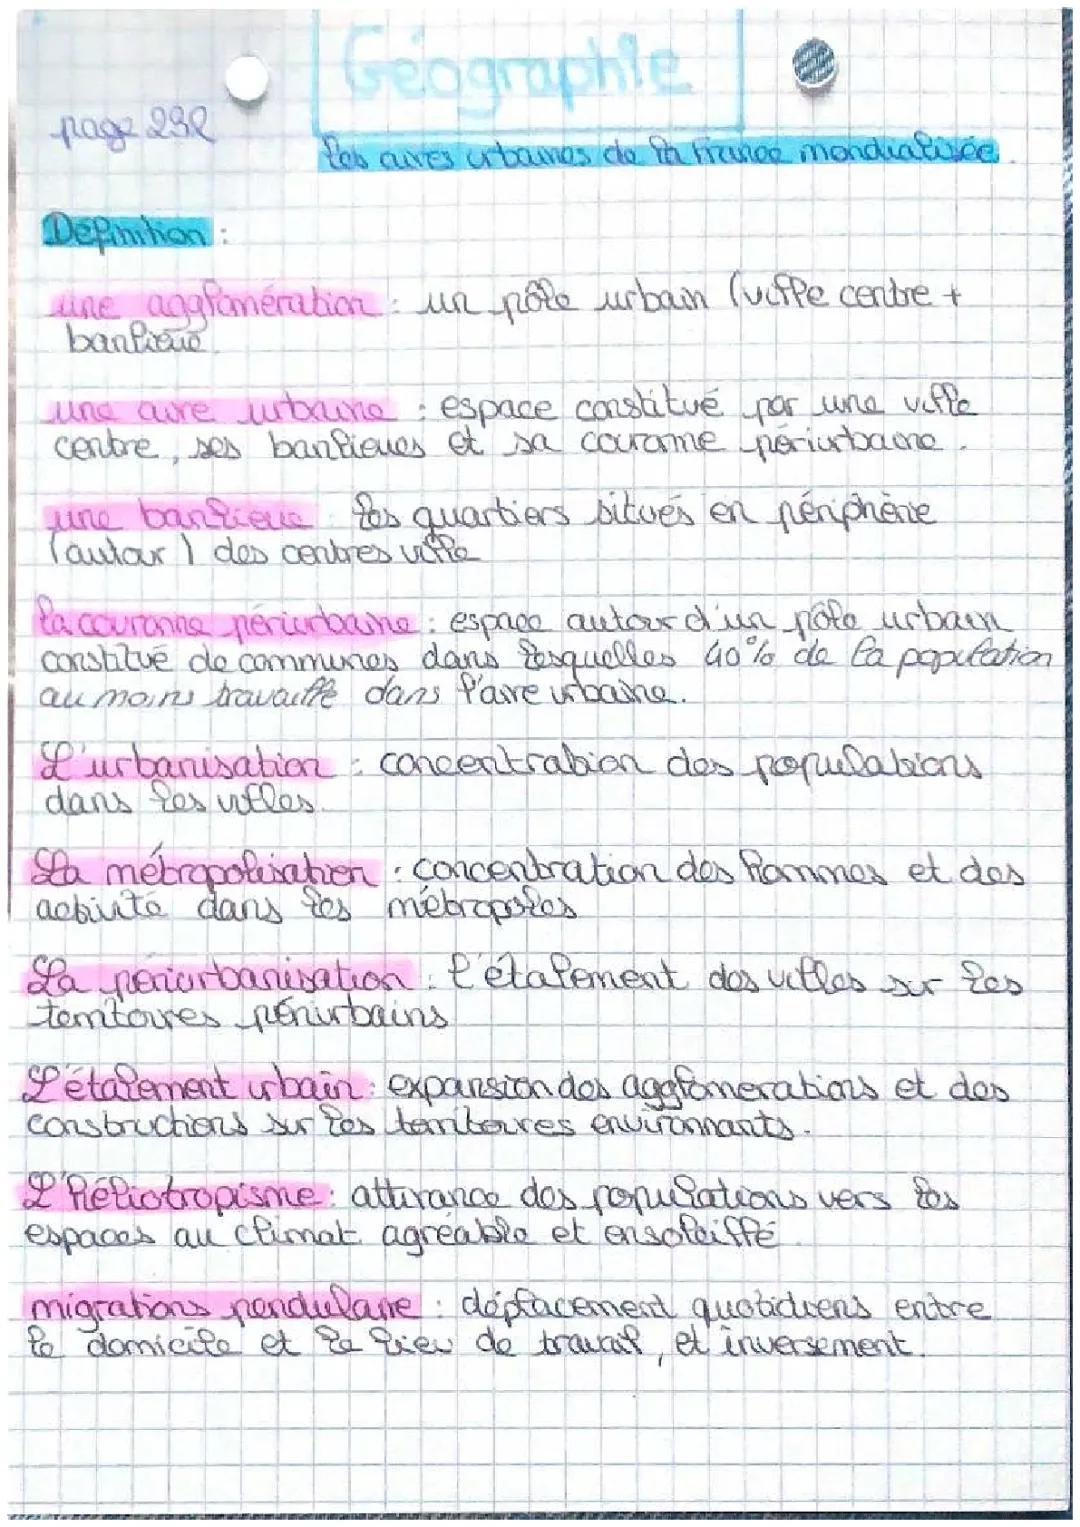 Géographie
page 232
Les aires urbaines de la France mondialisée.
Définition :
une agglomération : un pôle urbain (ville centre +
banlieue.
une aire urbaine : espace constitué par une ville
centre, ses banlieues et sa couronne périurbaine.
une banlieue les quartiers situés en périphérie
(autour) des centres ville
la couronne périurbaine : espace autour d'un pôle urbain
constitué de communes dans lesquelles 40% de la population
au moins travaille dans l'aire urbaine.
L'urbanisation : concentration des populations
dans les villes.
La métropolisation : concentration des hommes et des
activité dans les métropoles
La périurbanisation : l'étalement des villes sur les
territoires périurbains
L'étalement urbain : expansion des agglomerations et des
constructions sur les territoires environnants.
L'héliotropisme : attirance des populations vers les
espaces au climat agréable et ensoleillé.
migrations pendulaire : déplacement quotidiens entre
le domicile et le lieu de travail, et inversement.